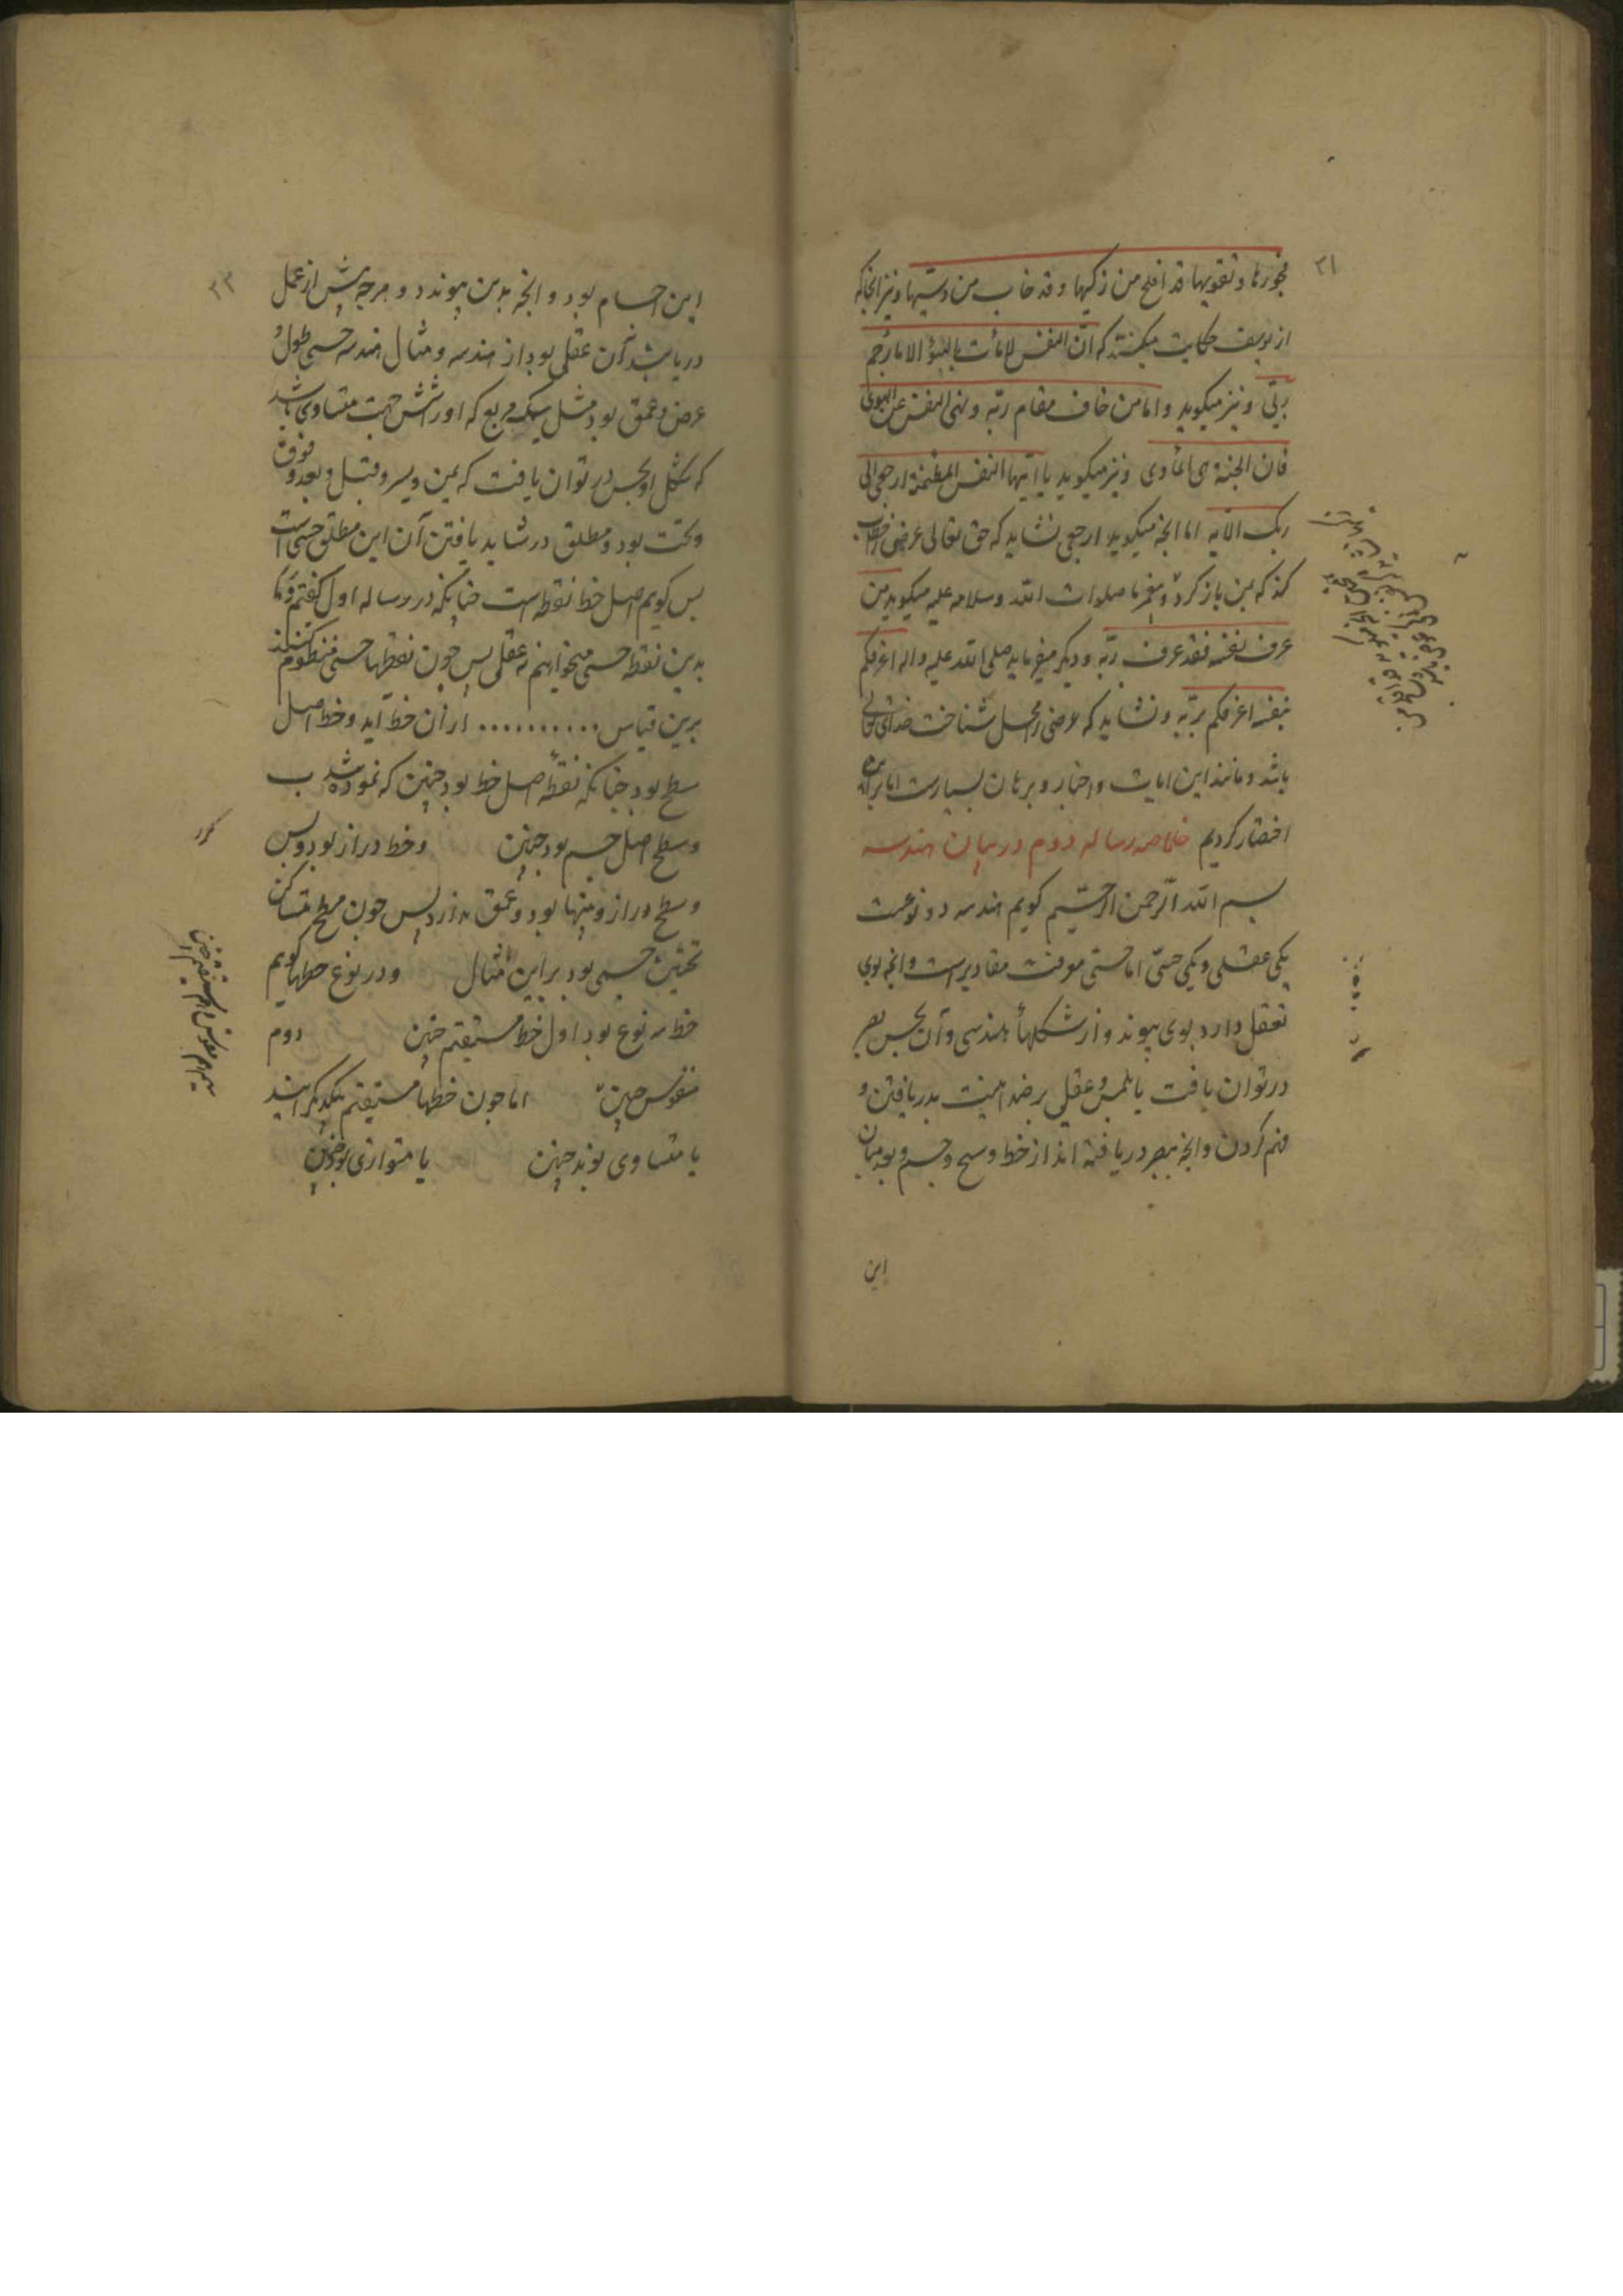 ۳۱
فجورها و تقویها قد افلح من زکیها و قد خاب من دسیها و نیز انجا که
از یوسف حکایت میکند که ان النفس لامارت بالسوٴ الا ما رحم
ربی و نیز میکوید و اما من خاف مقام ربه و نهی النفس عن الهوی
فان الجنة هی المأوی و نیز میکوید یا ایتها النفس المطمئنة ارجعی الی
ربک الآیه اما انجه میکوید ارجعی نشاید که حق تعالی عرضی را خطاب
کند که بمن باز کرد و پیغمبر ما صلوات الله و سلامه علیه میکوید من
عرف نفسه فقد عرف ربه و دیکر میفرماید صلی الله علیه و اله اعرفکم
بنفسه اعرفکم بربه و نشاید که عرضی را محل شناخت خدای تعالی
باشد و مانند این ایات و اخبار و برهان بسیارست اما برین
اختصار کردیم خلاصه رساله دوم در بیان هندسه
بسم الله الرحمن الرحیم کویم هندسه دو نوعست
یکی عقلی و یکی حسی اما حسی معرفت مقادیرست و انجه بوی
تعلق دارد بوی پیوند و از شکلهاٴ هندسی و آن بحس بصر
در توان یافت یا بلمس و عقلی بر ضد اینست بدریافتن و
فهم کردن و انجه ببصر دریافته اند از خط و سطح و جسم و بعد میان
این
۳۲
این اجسام بود و انجه بدین پیوندد و هرجه پیش از عمل
دریابند آن عقلی بود از هندسه و مثال هندسه حسی طول و
عرض و عمق بود مثل سنک مربع که او را شش جهت متساوی باشد
که شکل او بحس در توان یافت که یمین و یسر و قبل و بعد و فوق
و تحت بود و مطلق در شاید یافتن آن این مطلق حسی است
پس کویم اصل خط نقطه است جنانکه در رساله اول کفتم و ما
بدین نقطه حسی میخواهیم نه عقلی پس جون نقطها حسی منظوم کنند
برین قیاس .......... از ان خط آید و خط اصل
سطح بود جنانکه نقطه اصل خط بود جنین که نموده شد
و سطح اصل جسم بود جنین و خط دراز بود و بس
و سطح دراز و پهنا بود و عمق ندارد پس جون سطح متساکن
تحتین جسمی بود براین مثال و در نوع خطها کویم
خط سه نوع بود اول خط مستقیم جنین دوم
مقوس جنین اما جون خطها مستقیم بیکدیکر ایند
یا متساوی بوند جنین یا متوازی بود جنین